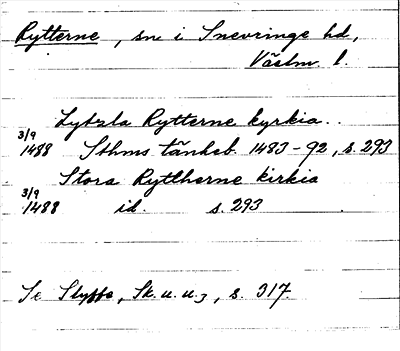 Rytterne, sn i Snevringe hd,
Västm l.
Lytzla Rytterne kyrkia..
3/9 1488 Sthms tänkeb. 1483-92, s. 293
Stora Rytlherne kirkia
3/9 1488 id. s. 293
Se Styffe, Sk. u. u. 3, s. 317.